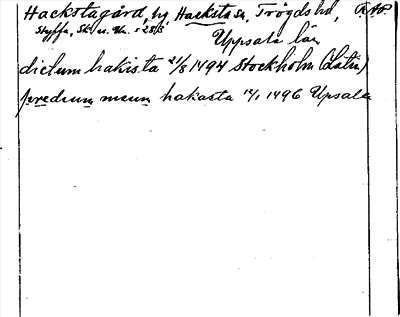 Hackstagård, by Hacksta sn, Trögds hd, RAP
Styffe, Sk. u. Un. s 285
Uppsala län
dictum hakista 21/8 1494 Stockholm (Latin)
predium meum hakasta 14/1 1496 Upsala